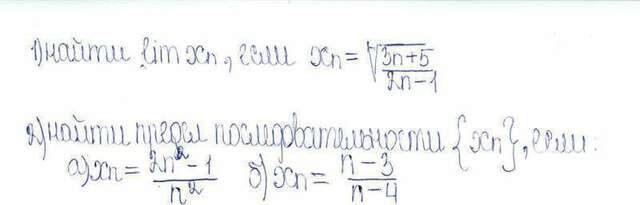 1) найти lim xn, если xn = √(3n+5)/(2n-1)
2) найти предел последовательности {xn}, если:
а) xn = (2n²-1)/n² б) xn = (n-3)/(n-4)